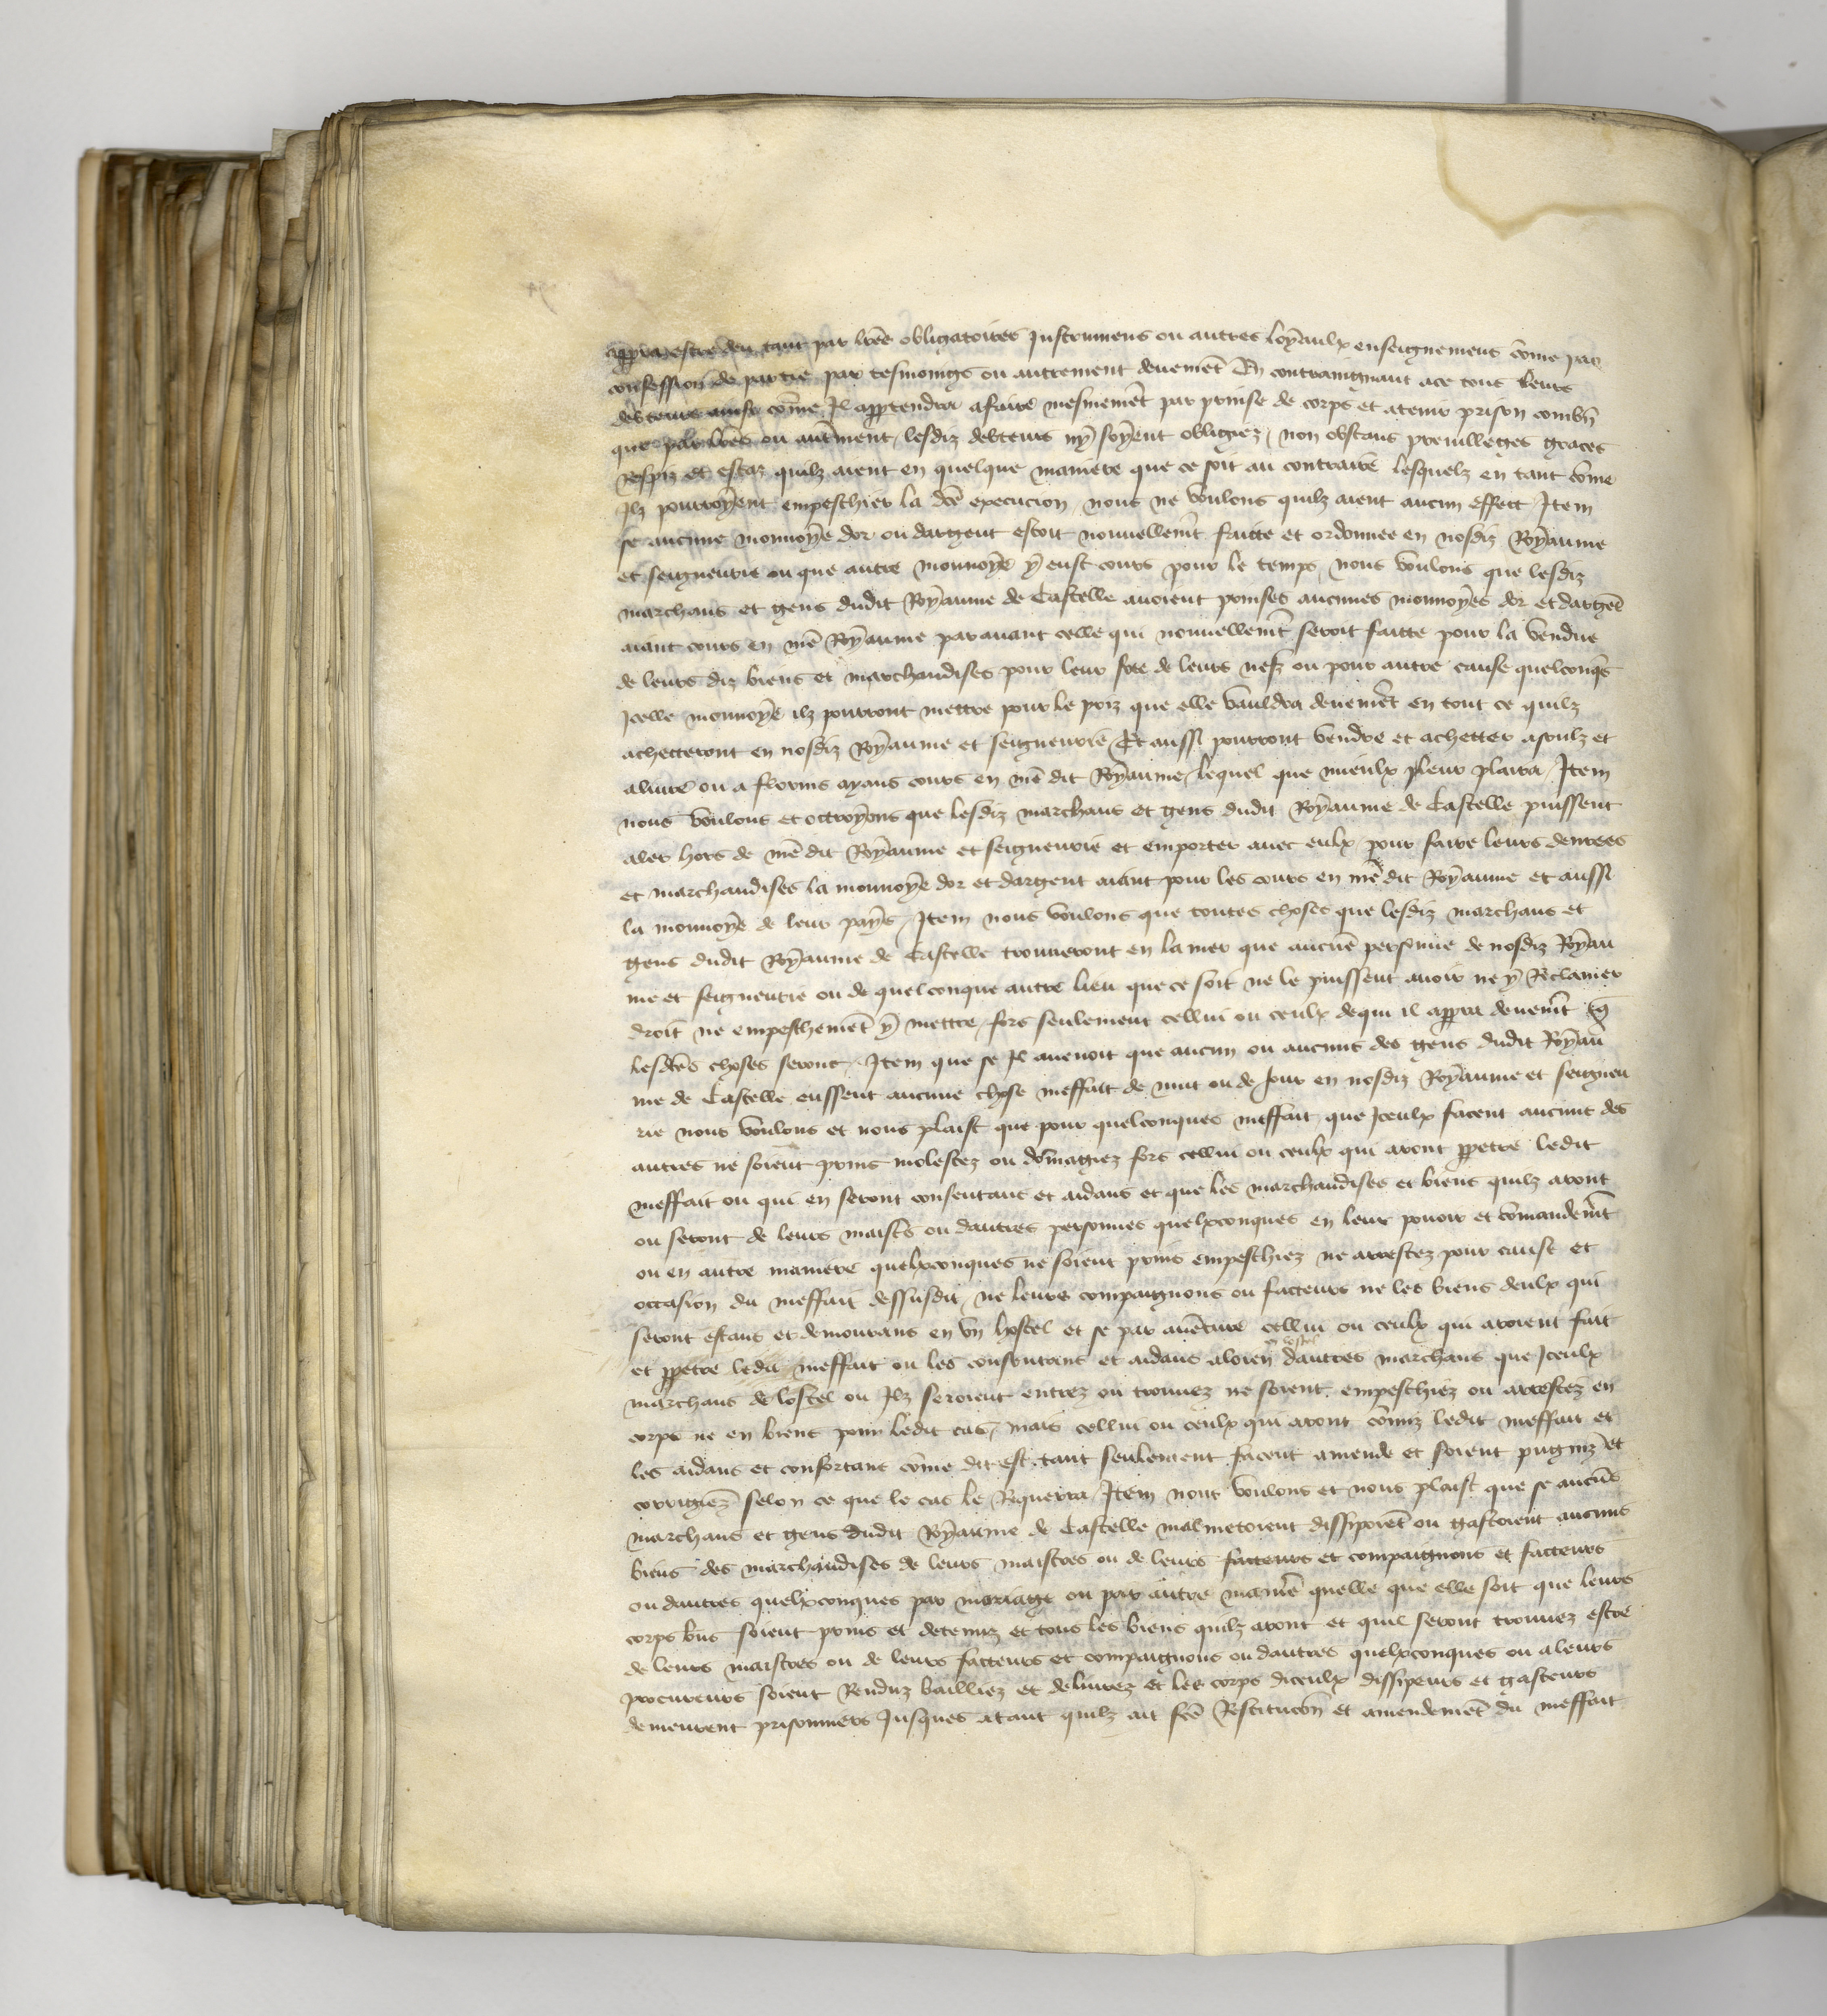 apperra estre deu tant par lrēs obligatoires Instrumens ou autres loyaulx enseignemens cōme par
confession de partie par tesmoings ou autrement deuemēt En contraingnant ace tous leurs
debteurs ainsi cōme Il apprtendra afaire mesmemēt par prinse de corps et atenir prison combn̄
que par lrēs ou autrment lesdiz debteurs ny soyent obligiez / non obstans preuilleges graces
Respiz et estaz quilz aient en quelque maniere que ce soit au contraire lesquelz en tant cōme
Ilz pourroyent empeschier la dcē execucion nous ne voulons quilz aient aucun effect Item
se aucune monnoye dor ou dargent estoit nouuellemt̄ faitte et ordonnee en nosdiz Royaume
et seigneurie ou que autre monnoye y eust cours pour le temps nous voulons que lesdiz
marchans et gens dudit Royaume de Castelle auoient prinses aucunes monnoyes dor et dargēt
aiant cours en mē Royaume parauant celle qui nouuellemt̄ seroit faitte pour la vendue
de leurs diz biens et marchandises pour leur fre de leurs nefz ou pour autre cause quelconq̄s
Icelle monnoye ilz pourront mettre pour le priz que elle vauldra deuemēt en tout ce quilz
achetteront en nosdiz Royaume et seigneurie Et aussi pourront vendre et achetter asoulz et
aliure ou a florins ayans cours en mē dit Royaume lequel que mieulx leur plaira / Item
nous voulons et ottroyons que lesdiz marchans et gens dudit Royaume de Castelle puissent
aler hors de mē dit Royaume et seigneurie et emporter auec eulx pour faire leurs denrees
et marchandises la monnoye dor et dargent aiant pour les cours en mē dit Royaume et aussi
la monnoye de leur pays / Item nous voulons que toutes choses que lesdiz marchans et
gens dudit Royaume de Castelle trouueront en la mer que aucuē personne de nosdiz Royau
me et seigneurie ou de quelconque autre lieu que ce soit ne le puissent auoir ne y Reclamer
droit ne empeschemēt y mettre / fors seulement cellui ou ceulx dequi il apperra deuemt̄ q̄
lesdcēs choses seront / Item que se Il auenoit que aucun ou aucuns des gens dudit Royau
me de Castelle eussent aucune chose meffait de nuit ou de Jour en nosdiz Royaume et seigneu
rie nous voulons et nous plaist que pour quelconques meffait que Iceulx facent aucuns des
autres ne soient prins molestez ou dōmagiez fors cellui ou ceulx qui aront ppetre ledit
meffait ou qui en seront consentans et aidans et que les marchandises et biens quilz aront
ou seront de leurs maistrs ou dautres personnes quelxconques en leur pouoir et cōmandemt̄
ou en autre maniere quelxconques ne soient prins empeschiez ne arrestez pour cause et
occasion du meffait dessusdit / ne leurs compaignons ou facteurs ne les biens deulx qui
seront estans et demourans en vn hostel et se par auēture cellui ou ceulx qui aroient fait
et ppetre ledit meffait ou les consentans et aidans aloien en lostel dautres marchans que Iceulx
marchans de lostel ou Ilz seroient entrez ou trouuez ne soient empeschiez ou arrestez en
corps ne en biens pour ledit cas / mais cellui ou ceulx qui aront cōmiz ledit meffait et
les aidans et confortans cōme dit est tant seulement facent amende et soient pugniz et
corrigiez selon ce que le cas le Requerra / Item nous voulons et nous plaist que se aucūs
marchans et gens dudit Royaume de Castelle malmetoient dissipoiēt ou gastoient aucuns
biens des marchandises de leurs maistres ou de leurs facteurs et compaignons et facteurs
ou dautres quelxconques par mariage ou par autre maniē quelle que elle soit que leurs
corps bn̄s soient prins et detenuz et tous les biens quilz aront et quil seront trouuez estre
de leurs maistres ou de leurs facteurs et compaignons ou dautres quelxconques ou aleurs
procureurs soient Renduz bailliez et deliurez et les corps diceulx dissipeurs et gasteurs
demeurent prisonniers Jusques atant quilz ait fcē Restitucōn et amendemēt du meffait